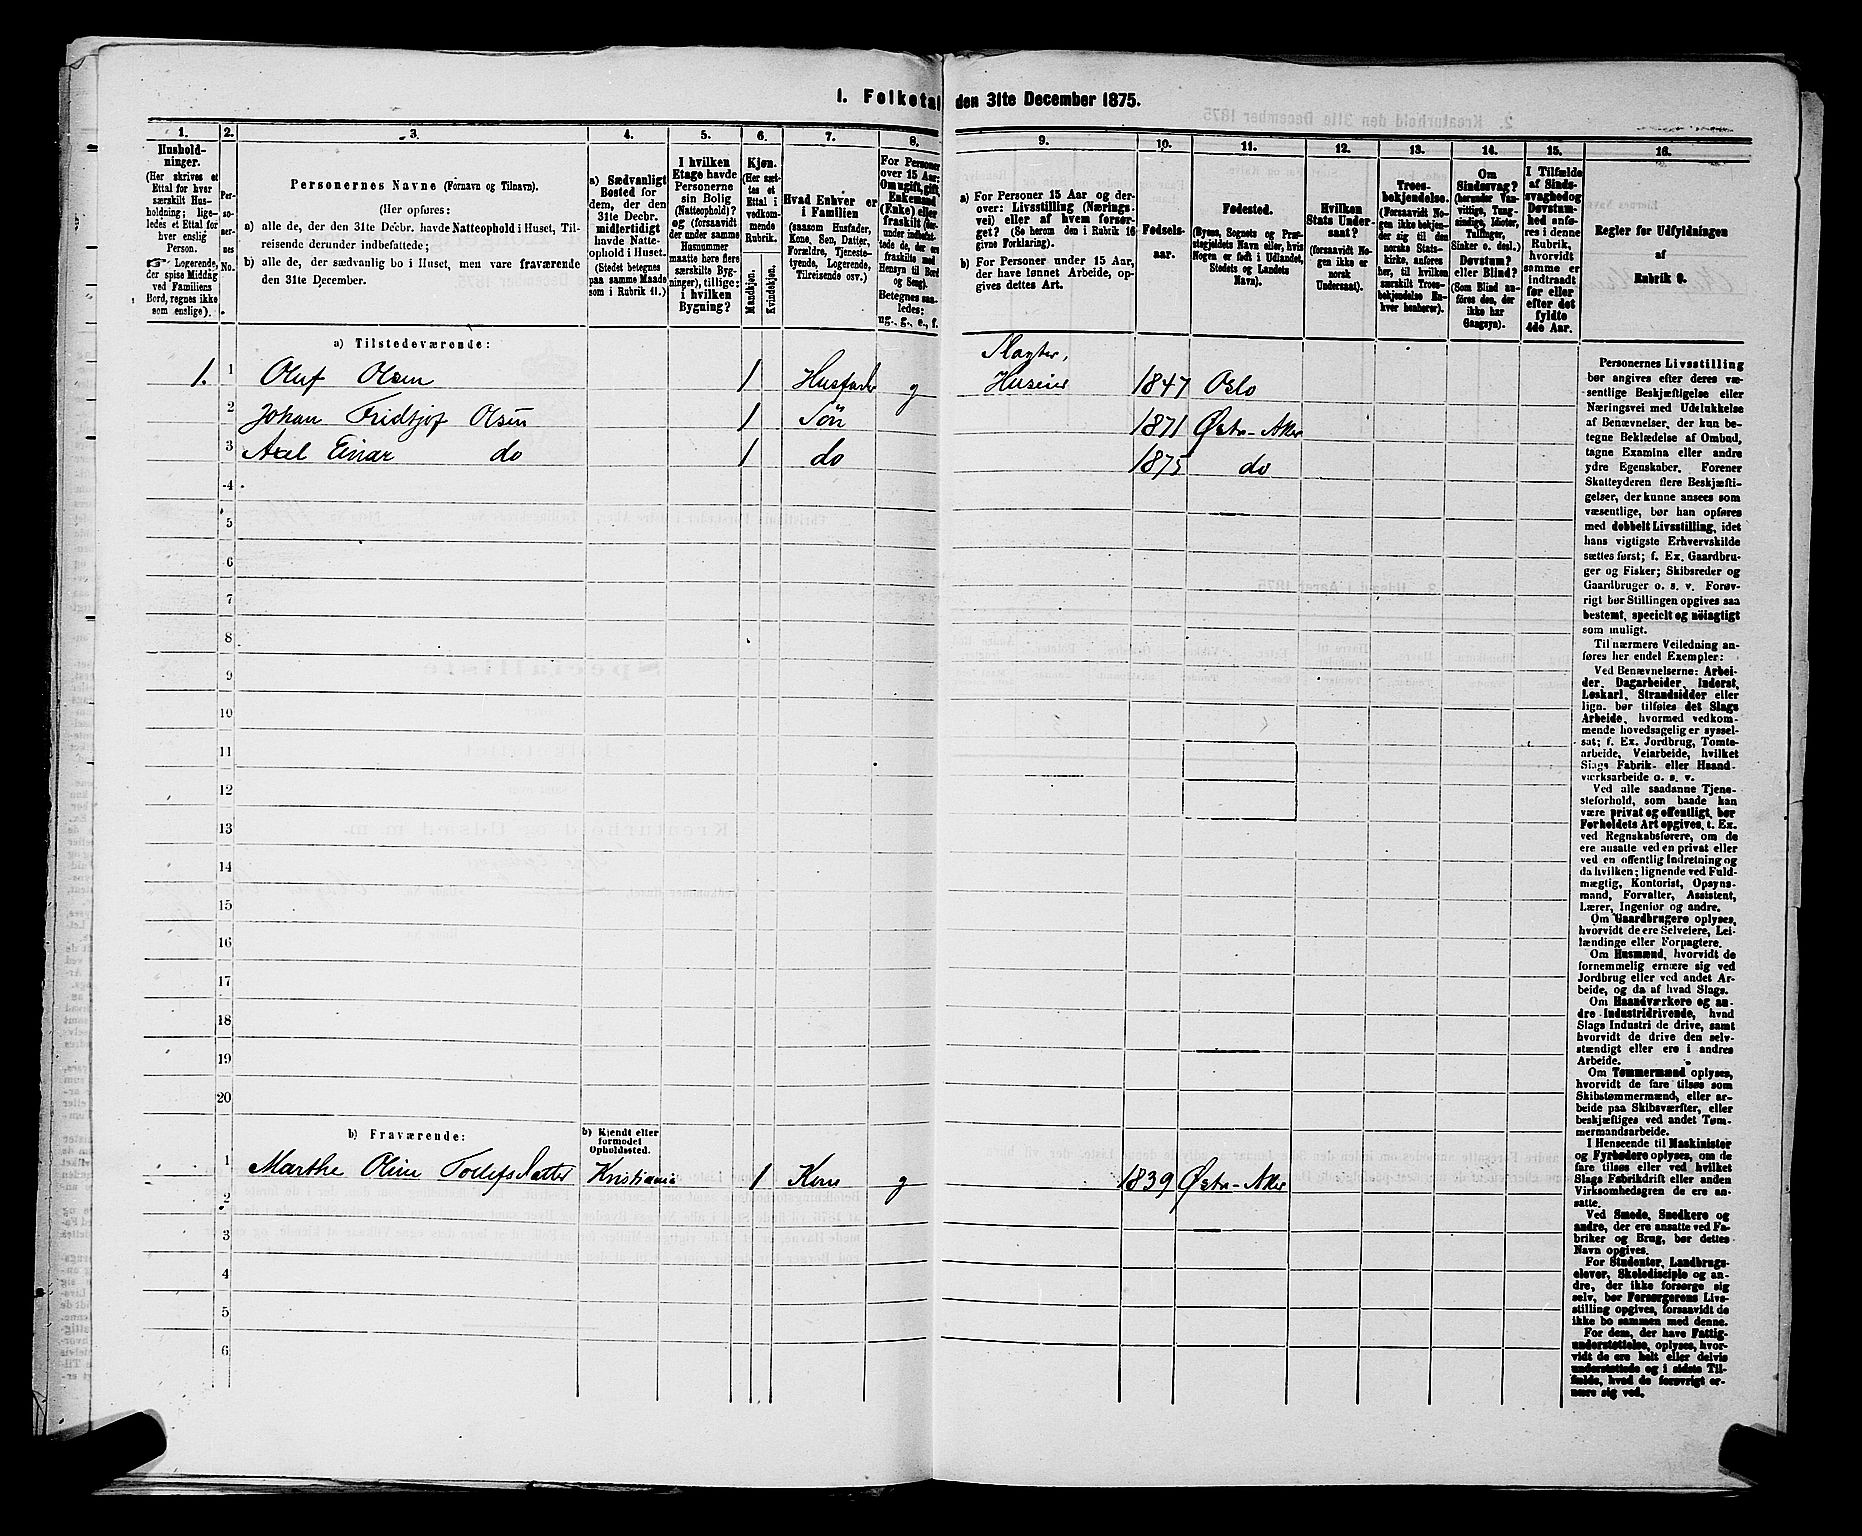 1. Folketal den 31te December 1875.
1. 2. 3. 4. 5. 6. 7. 8. 9. 10. 11. 12. 13. 14. 15. 16.
Hushold-
ninger.
(Her skrives et
Ettal for hver
særskilt Hus-
holdning; lige-
ledes et Ettal for
hver enslig
Person.
Logerende,
der spise Middag
ved Familiens
Bord, regnes ikke
som enslige).
Per-
so-
ner-
nes
No.
Personernes Navne (Fornavn og Tilnavn).
(Her opføres:
a) alle de, der den 31te Decbr. havde Natteophold i Huset, Til-
reisende derunder indbefattede;
b) alle de, der sædvanlig bo i Huset, men vare fraværende
den 31te December.
a) Sædvanligt
Bosted for
dem, der den
31te Decbr.
midlertidigt
havde Natte-
ophold i Huset.
(Stedet betegnes
paa samme Maade
som i Rubrik 11.)
I hvilken
Etage havde
Personerne
sin Bolig
(Natteophold)?
og (forsaavidt
der under samme
Husnummer
maatte høre flere
særskilte Byg-
ninger), tillige:
i hvilken
Bygning?
Kjøn.
(Her sæt-
tes et
Ettal i
vedkom-
mende
Rubrik.
Mandkjøn.
Kvindekjøn.
Hvad Enhver er
i Familien
(saasom Husfader,
Kone, Søn, Datter,
Forældre, Tjeneste-
tyende, Logerende,
Tilreisende osv.)
For Personer
over 15 Aar:
Om ugift, gift,
Enkemand
(Enke) eller
fraskilt (her-
under indbefat-
tede de, der ere
fraskilte med
Hensyn til Bord
og Seng).
Betegnes saa-
ledes:
ug., g., e., f.
a) For Personer 15 Aar og der-
over: Livsstilling (Nærings-
vei) eller af hvem forsør-
get? (Se herom den i Rubrik 16
givne Forklaring).
b) For Personer under 15 Aar,
der have lønnet Arbeide, op-
gives dettes Art.
Fødsels-
aar.
Fødested.
(Byens, Sognets og Præ-
stegjeldets Navn eller, hvis
Nogen er født i Udlandet,
Stedets og Landets
Navn).
Hvilken
Stats Under-
saat?
(forsaavidt No-
gen ikke er
norsk
Undersaat).
Troes-
bekjendelse.
(Forsaavidt No-
gen ikke bekjen-
der sig til den
norske Stats-
kirke, anføres
her, til hvilken
særskilt Troes-
bekjendelse En-
hver henhører).
Om
Sindssvag?
(herunder Van-
vittige, Tung-
sindige, Idioter,
Tullinger,
Sinker o. desl.)
Døvstum?
eller Blind?
(Som Blind an-
føres den, der
ikke har
Gangsyn).
I Tilfælde
af Sinds-
svaghed og
Døvstum-
hed anfø-
res i denne
Rubrik,
hvorvidt
samme er
indtraadt
før eller
efter det
fyldte
4de Aar.
Regler for Udfyldningen
af
Rubrik 9.
a) Tilstedeværende:
Slagter,
1. 1 Oluf Olsen 1 Husfader g Huseier 1847 Oslo
2 Johan Fridtjof Olsen 1 Søn 1871 Østr-Aker
3 Axel Einar do 1 do 1875 do
4
5
6
7
8
9
10
11
12
13
14
15
16
17
18
19
20
b) Fraværende:
b) Kjendt eller
formodet
Opholdssted.
1 Marthe Oline Tollefsdatter Kristiania 1 Kone g 1839 Østr-Aker
2
3
4
5
6
Personernes Livsstilling
bør angives efter deres væ-
sentlige Beskjæftigelse eller
Næringsvei med Udelukkelse
af Benævnelser, der kun be-
tegne Beklædelse af Ombud,
tagne Examina eller andre
ydre Egenskaber. Forener
Skatteyderen flere Beskjæfti-
gelser, der kunne ansees som
væsentlige, bør han opføres
med dobbelt Livsstilling, idet
hans vigtigste Erhvervskilde
sættes først; f. Ex. Gaardbru-
ger og Fisker; Skibsreder og
Gaardbruger o. s. v. Forøv-
rigt bør Stillingen opgives saa
bestemt, specielt og nöiagtigt
som muligt.
Til nærmere Veiledning an-
føres her endel Exempler:
Ved Benævnelserne: Arbei-
der, Dagarbeider, Inderst,
Løskarl, Strandsidder eller
lign. bør tilføies det Slags
Arbeide, hvormed vedkom-
mende hovedsagelig er syssel-
sat; f. Ex. Jordbrug, Tomte-
arbeide, Veiarbeide, hvilket
Slags Fabrik- eller Haand-
værksarbeide o. s. v.
Ved alle saadanne Tjene-
steforhold, som baade kan
være privat og offentligt, bør
Forholdets Art opgives, t. Ex.
ved Regnskabsførere, om de
ere ansatte ved en privat eller
ved en offentlig Indretning og
da hvilken; lignende ved Fuld-
mægtig, Kontorist, Opsyns-
mand, Forvalter, Assistent,
Lærer, Ingeniør og andre.
Om Gaardbrugere oplyses,
hvorvidt de ere Selveiere, Lei-
lændinge eller Forpagtere.
Om Husmænd, hvorvidt de
fornemmelig ernære sig ved
Jordbrug eller ved andet Ar-
beide, og da af hvad Slags.
Om Haandværkere og an-
dre Industridrivende, hvad
Slags Industri de drive, samt
hvorvidt de drive den selv-
stændigt eller ere i andres
Arbeide.
Om Tømmermænd oplyses,
hvorvidt de fare tilsøs som
Skibstømmermænd, eller ar-
beide paa Skibsværfter, eller
beskjæftiges ved andet Tøm-
mermandsarbeide.
I Henseende til Maskinister
og Fyrbødere oplyses, om de
fare tilsøs eller ved hvilket
Slags Fabrikdrift eller anden
Virksomhedsgren de ere an-
satte.
Ved Smede, Snedkere og
andre, der ere ansatte ved Fa-
briker og Brug, bør dettes
Navn opgives.
For Studenter, Landbrugs-
elever, Skoledisciple og an-
dre, der ikke forsørge sig
selv, bør Forsørgerens Livs-
stilling opgives, forsaavidt de
ikke bo sammen med denne.
For dem, der have Fattig-
understøttelse, oplyses, hvor-
vidt de ere helt eller delvis
understøttede og i sidste Til-
fælde, hvad de forøvrigt er-
nære sig ved.